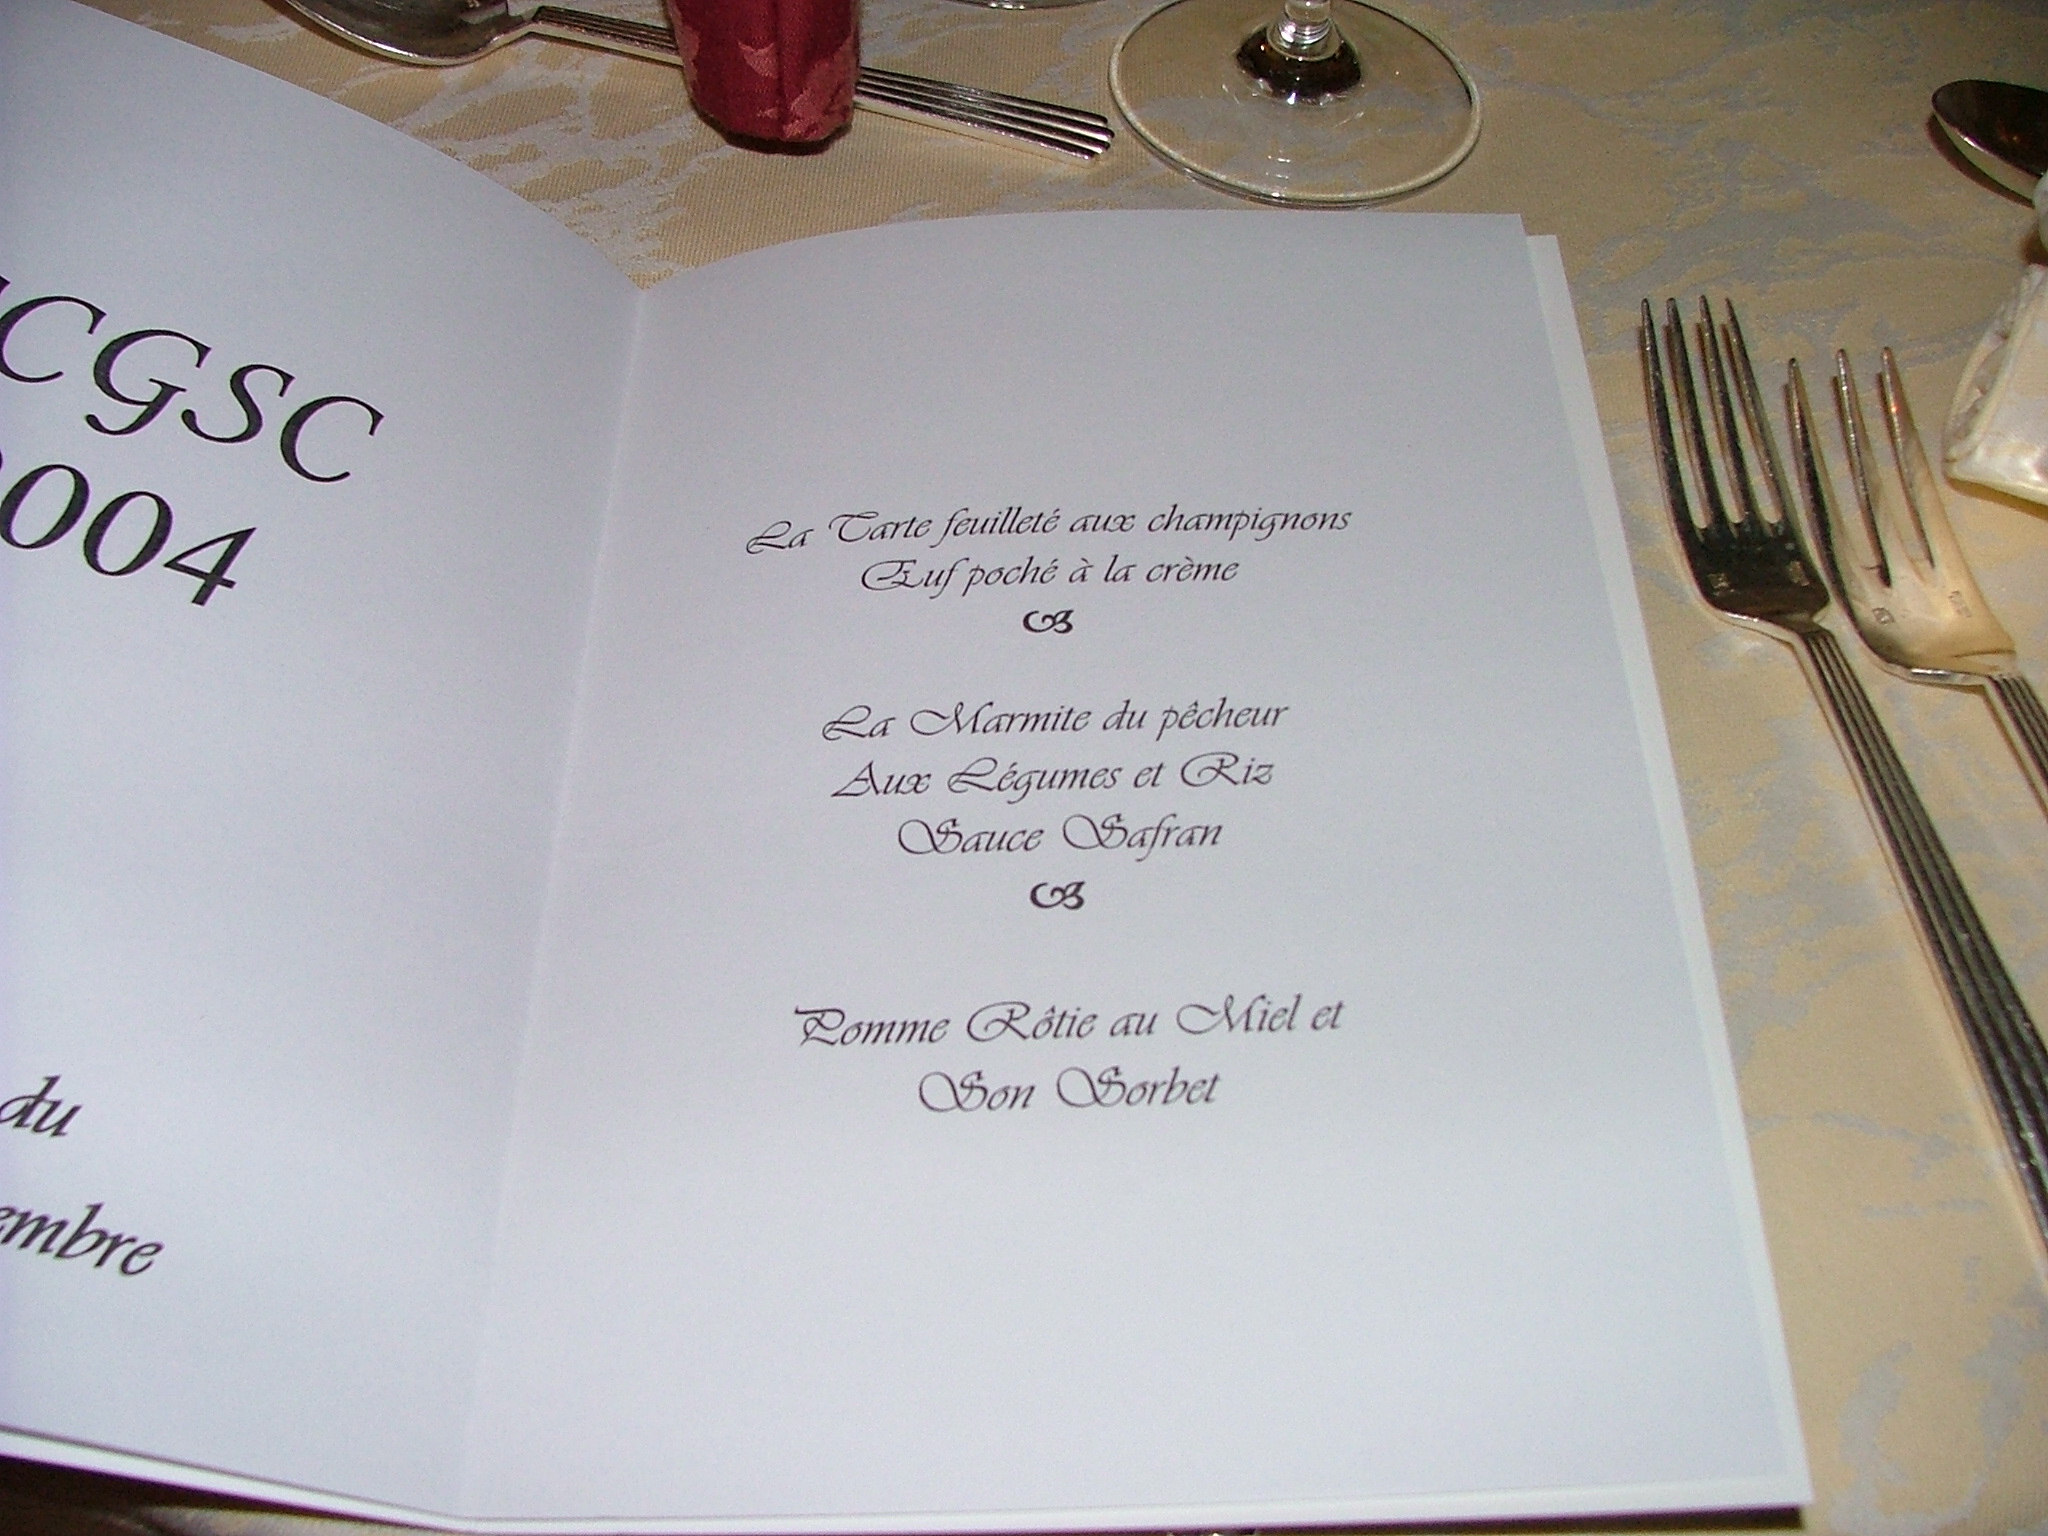 CGSC
004
du
embre
La Tarte feuilleté aux champignons
Œuf poché à la crème
La Marmite du pêcheur
Aux Légumes et Riz
Sauce Safran
Pomme Rôtie au Miel et
Son Sorbet